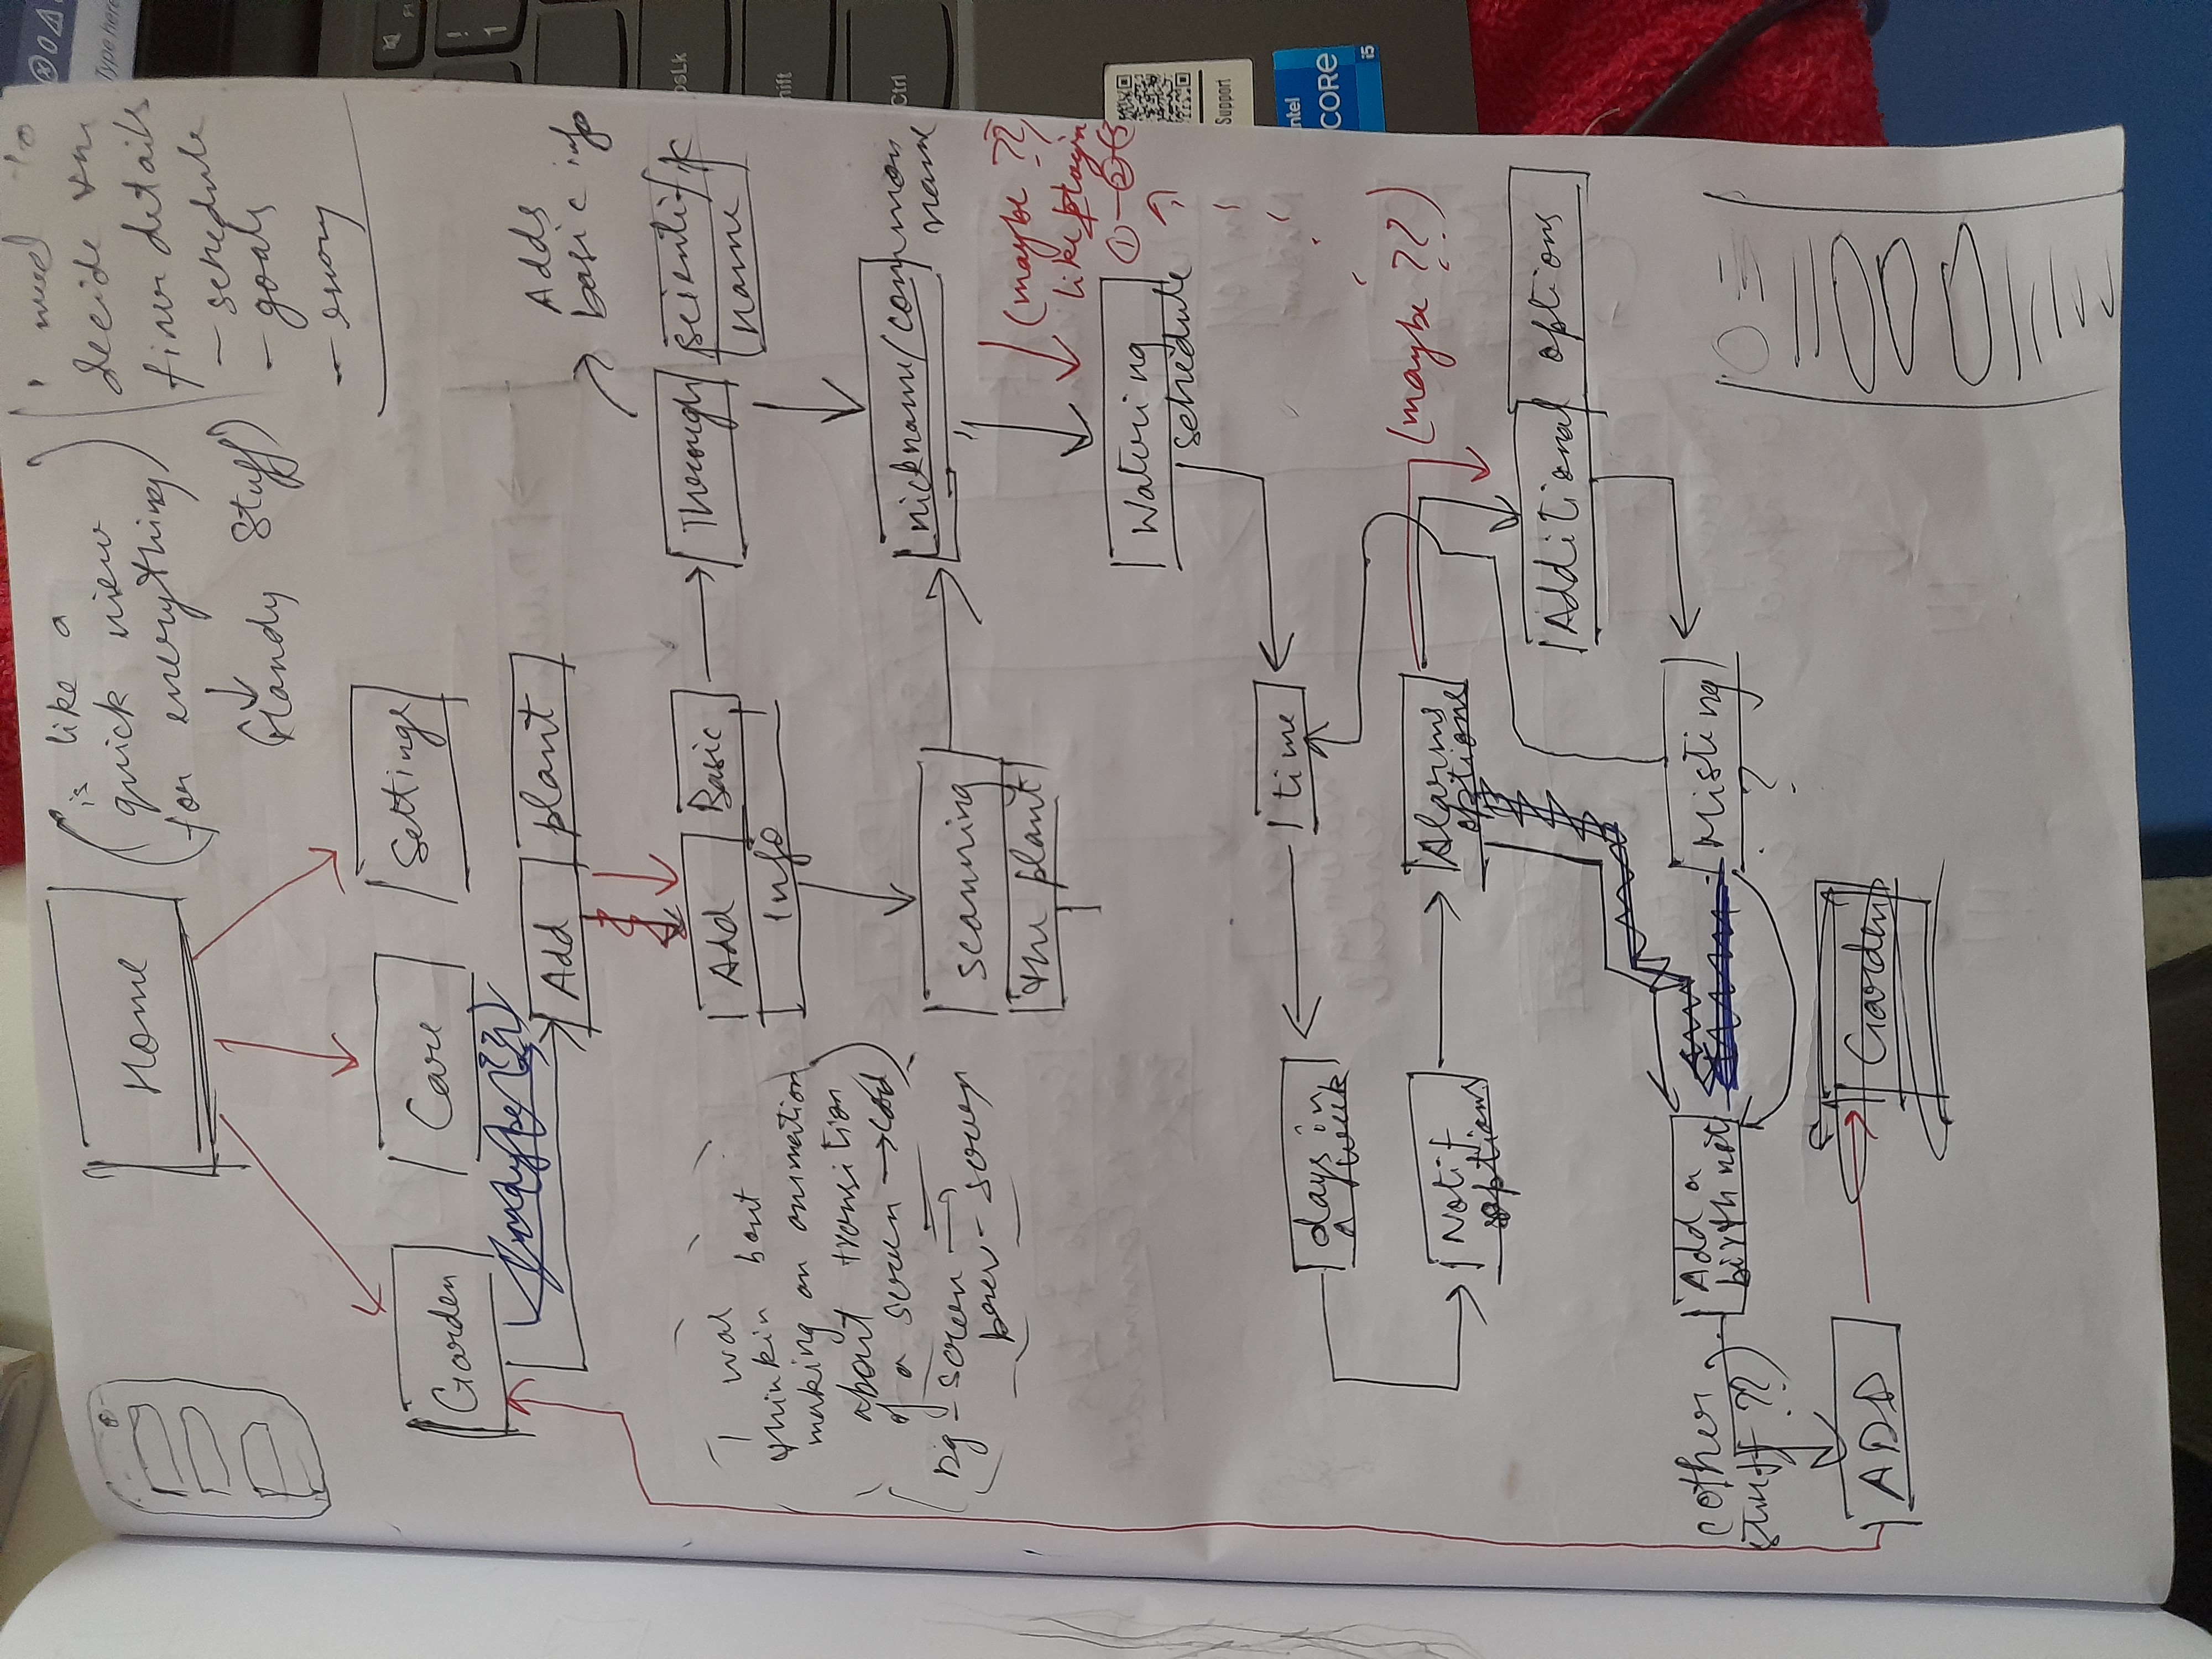 Home
(is like a
quick view
for everything)
(Handy Stuff)
i need to
decide
finer details
- schedule
- goals
-
Garden
Care
Settings
(maybe??)
Add plant
Adds
basic info
Add Basic
Info
Through scientific
name
I was
thinkin bout
making an animation
about transition
of a screen →
screen →
screen
scanning
the plant
nickname/common
name
(maybe ??)
like
① - ② - ③
Watering
schedule
time
days in
a week
Notif
options
Alarms
options
(maybe ??)
Additional options
Misting
?
Add a
birth
(other
stuff ??)
ADD
Garden
Type here
! 1
Shift
Ctrl
Support
intel
CORE
i5